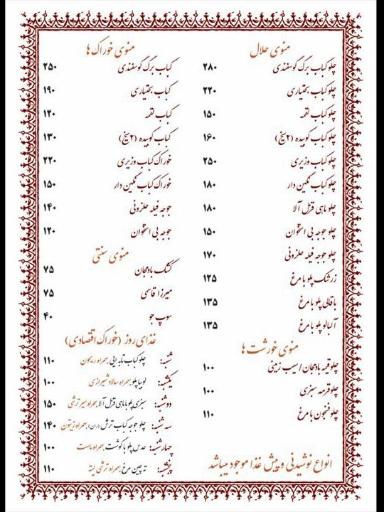 منوی حلال
چلوکباب برگ گوسفندی ۲۸۰
چلوکباب بختیاری ۲۲۰
چلوکباب لقمه ۱۵۰
چلوکباب کوبیده (۲سیخ) ۱۶۰
چلوکباب وزیری ۲۵۰
چلوکباب نگین دار ۱۸۰
چلو ماهی قزل آلا ۱۸۰
چلو جوجه بی استخوان ۱۵۰
چلو جوجه فیله حلزونی ۱۷۰
زرشک پلو با مرغ ۱۲۵
باقالی پلو با مرغ ۱۳۵
آلبالو پلو با مرغ ۱۳۵
منوی خورشت ها
چلو قیمه بادمجان / سیب زمینی ۱۰۰
چلو قرمه سبزی ۱۰۰
چلو فسنجون با مرغ ۱۱۰
انواع نوشیدنی و پیش غذا موجود میباشد
منوی خوراک ها
کباب برگ گوسفندی ۲۵۰
کباب بختیاری ۱۹۰
کباب لقمه ۱۲۰
کباب کوبیده (۲سیخ) ۱۳۰
خوراک کباب وزیری ۲۲۰
خوراک کباب نگین دار ۱۵۰
جوجه فیله حلزونی ۱۴۰
جوجه بی استخوان ۱۲۰
منوی سنتی
کشک بادمجان ۷۵
میرزا قاسمی ۷۵
سوپ جو ۴۰
غذای روز (خوراک اقتصادی)
شنبه: چلو کباب تابه ایی همراه ریحون ۱۱۰
یکشنبه: لوبیا پلو همراه سالاد شیرازی ۱۰۰
دوشنبه: سبزی پلو با ماهی قزل آلا همراه سیر ترشی ۱۵۰
سه شنبه: چلو جوجه کباب ترش همراه زیتون ۱۴۰
چهارشنبه: عدس پلو با گوشت همراه ماست ۱۰۰
پنجشنبه: ته چین مرغ همراه ترشی لیته ۱۱۰